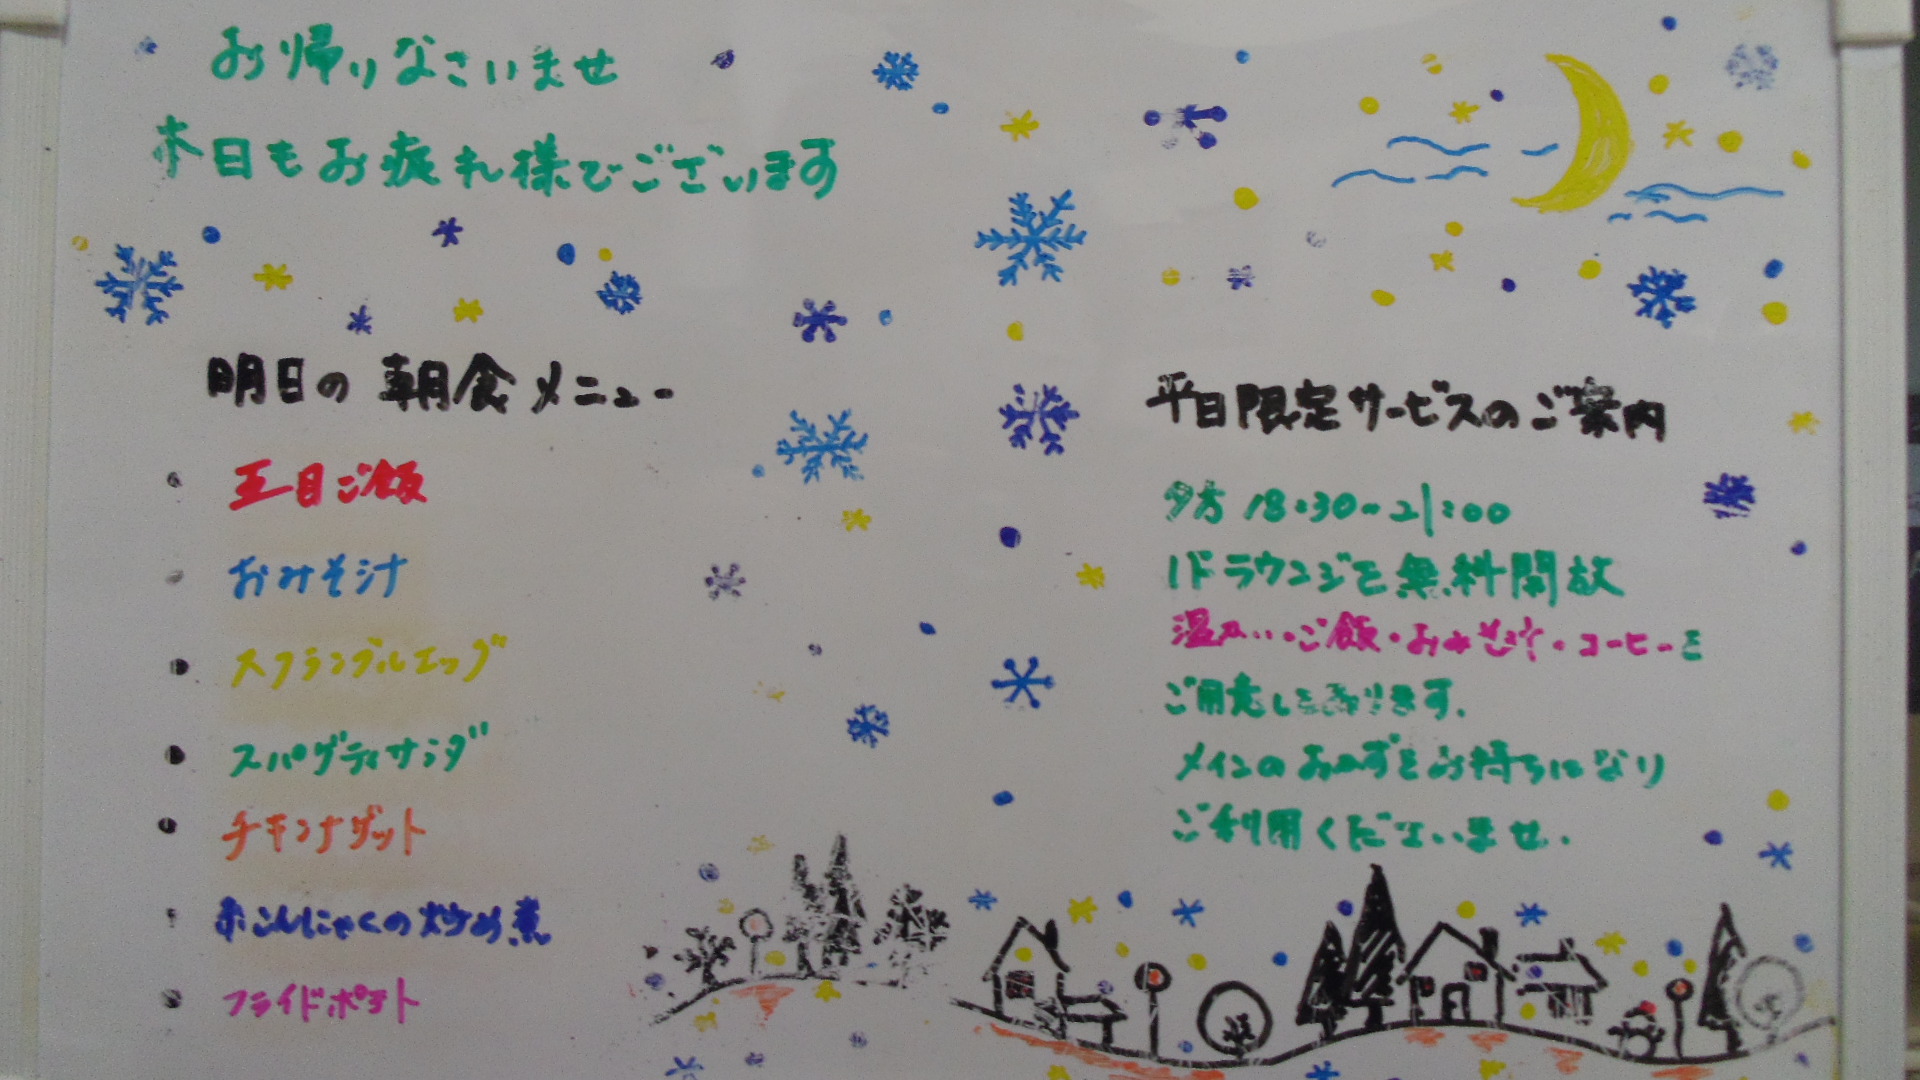 お帰りなさいませ
本日もお疲れ様でございます
明日の朝食メニュー
五目ご飯
おみそ汁
スクランブルエッグ
スパゲティサラダ
チキンナゲット
赤こんにゃくの炒め煮
フライドポテト
平日限定サービスのご案内
夕方 18:30〜21:00
1Fラウンジを無料開放
温かい・ご飯・おみそ汁・コーヒーを
ご用意しております。
メインのおかずをお持ちになり
ご利用くださいませ。